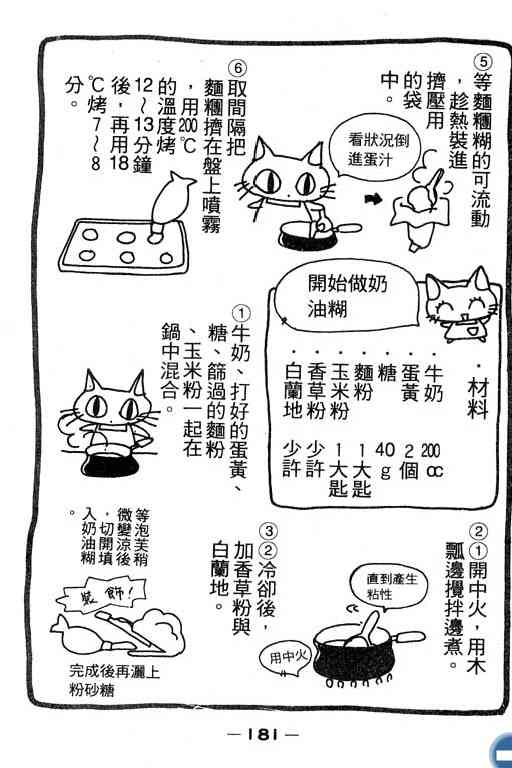 ⑤等麵糰糊的可流動
，趁熱裝進
擠壓用
的袋
中。
看狀況倒
進蛋汁
⑥取間隔把
麵糰擠在盤上噴霧
，用200℃
的溫度烤
12～13分鐘
後，再用18
℃烤7～8
分。
開始做奶
油糊
．材料
．牛奶 200cc
．蛋黃 2個
．糖 40g
．麵粉 1大匙
．玉米粉 1大匙
．香草粉 少許
．白蘭地 少許
①牛奶、打好的蛋黃、
糖、篩過的麵粉
、玉米粉一起在
鍋中混合。
②①開中火，用木
瓢邊攪拌邊煮。
直到產生
粘性
用中火
③②冷卻後，
加香草粉與
白蘭地。
等泡芙稍
微變涼後
，切開填
入奶油糊
。
裝飾！
完成後再灑上
粉砂糖
—181—